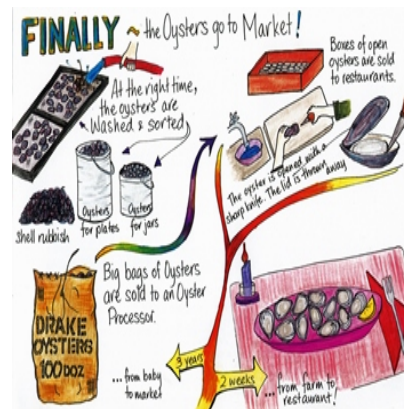 FINALLY ~ the Oysters go to Market!
At the right time,
the oysters are
Washed & sorted
Boxes of open
oysters are sold
to restaurants.
The oyster is opened with a
sharp knife. The lid is thrown away
Oysters
for plates
Oysters
for jars
shell rubbish
Big bags of Oysters
are sold to an Oyster
Processor.
DRAKE
OYSTERS
100 DOZ
3 years
...from baby
to market
2 weeks
...from farm to
restaurant!